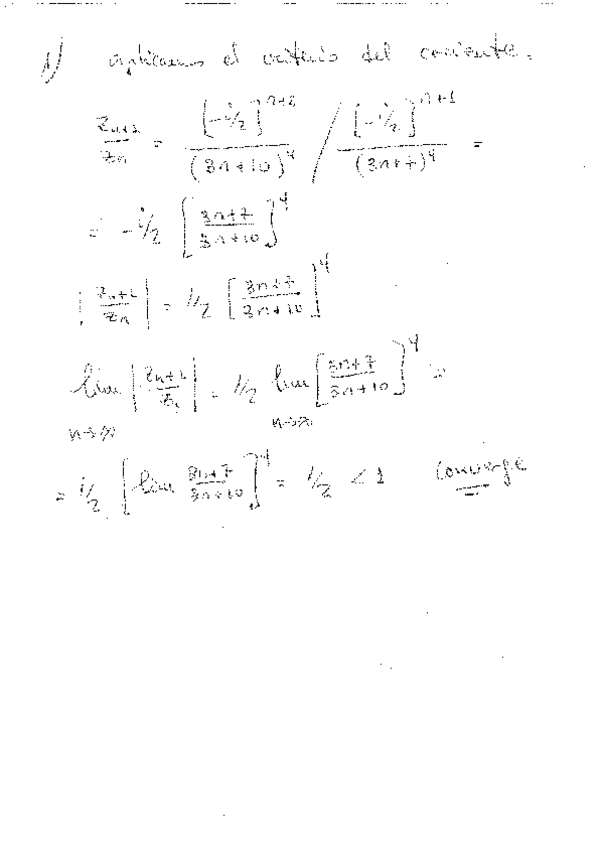 1) aplicamos el criterio del cociente.
z_{n+1}/z_n = [-i/2]^{n+2}/(3n+10)^4 / [-i/2]^{n+1}/(3n+7)^4 =
= -i/2 [3n+7/3n+10]^4
|z_{n+1}/z_n| = 1/2 [3n+7/3n+10]^4
lim n→∞ |z_{n+1}/z_n| = 1/2 lim n→∞ [3n+7/3n+10]^4 =
= 1/2 [lim 3n+7/3n+10]^4 = 1/2 < 1 converge